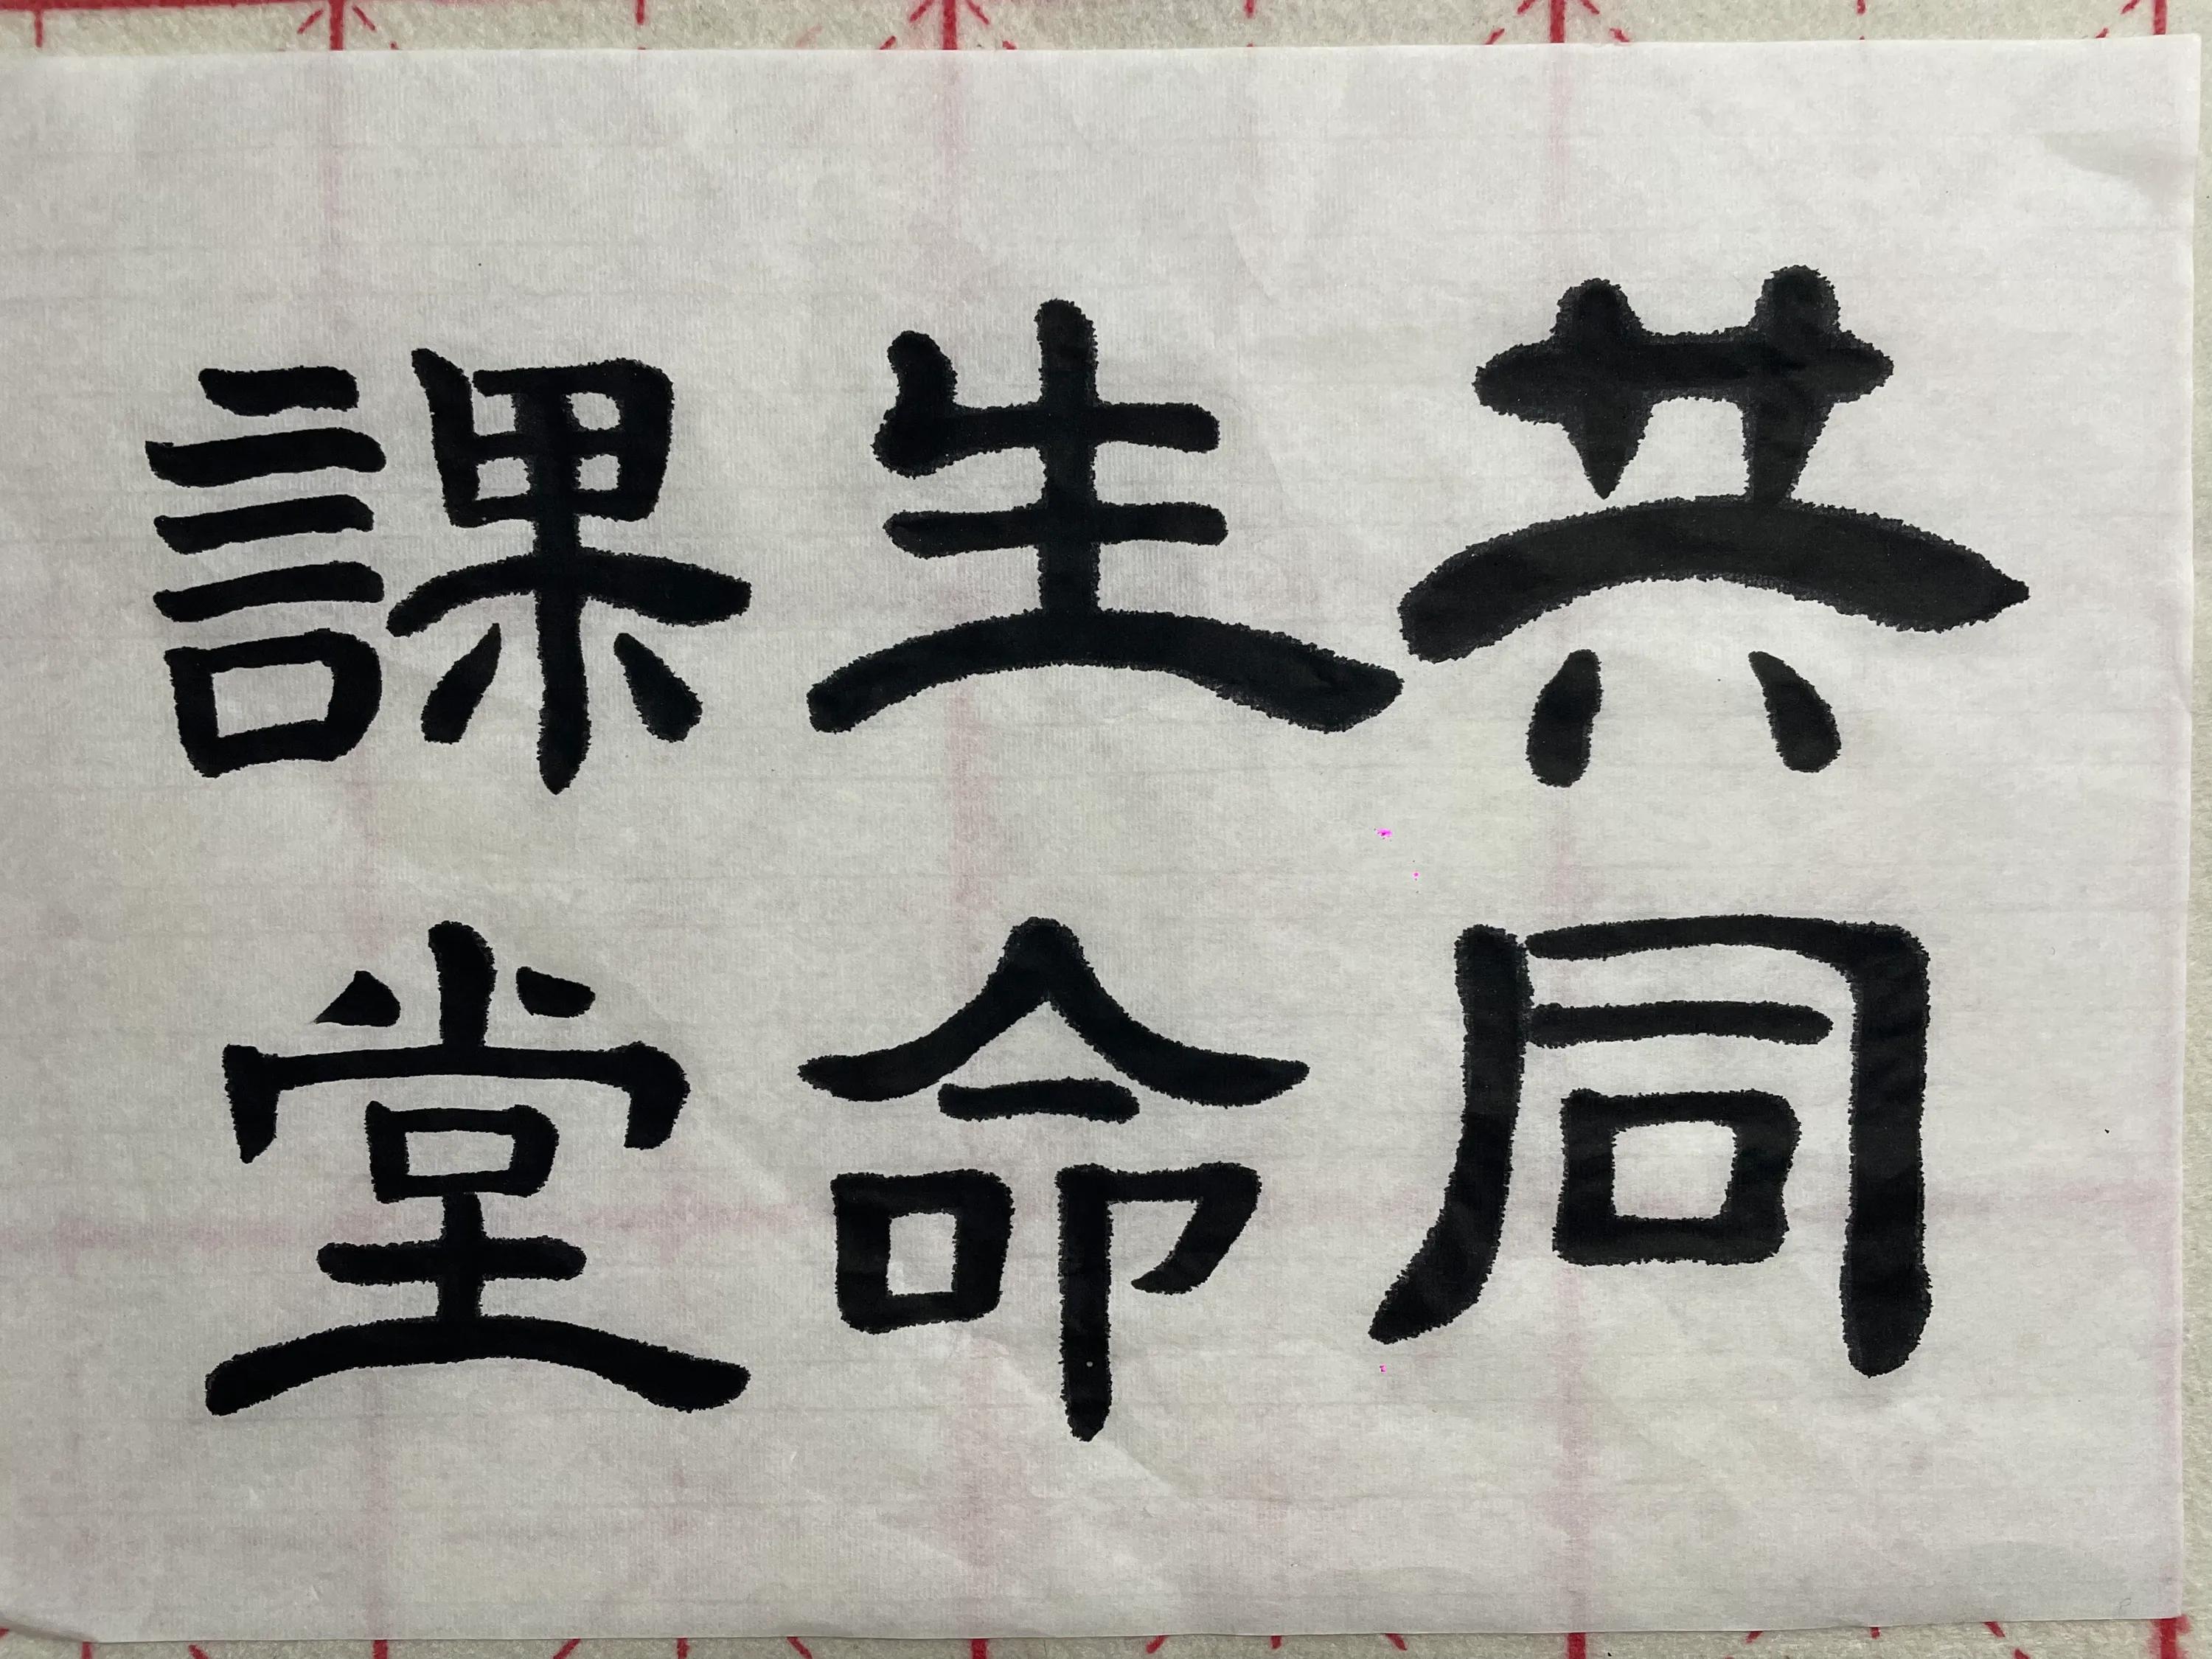 共同
生命
課堂